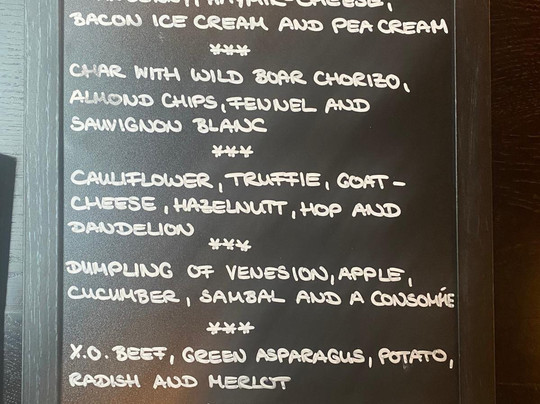 BACON ICE CREAM AND PEA CREAM
***
CHAR WITH WILD BOAR CHORIZO,
ALMOND CHIPS, FENNEL AND
SAUVIGNON BLANC
***
CAULIFLOWER, TRUFFIE, GOAT-
CHEESE, HAZELNUTT, HOP AND
DANDELION
***
DUMPLING OF VENESION, APPLE,
CUCUMBER, SAMBAL AND A CONSOMÉE
***
X.O. BEEF, GREEN ASPARAGUS, POTATO,
RADISH AND MERLOT